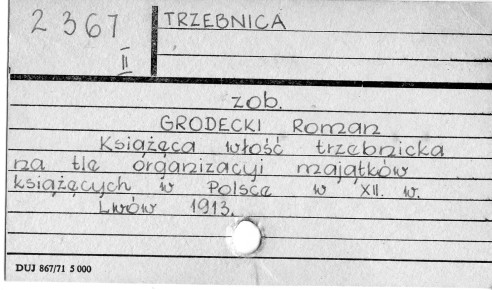 2 367
II
TRZEBNICA
zob.
GRODECKI Roman
Książęca włość trzebnicka
na tle organizacyi majątków
książęcych w Polsce w XII. w.
Lwów 1913.
DUJ 867/71 5 000